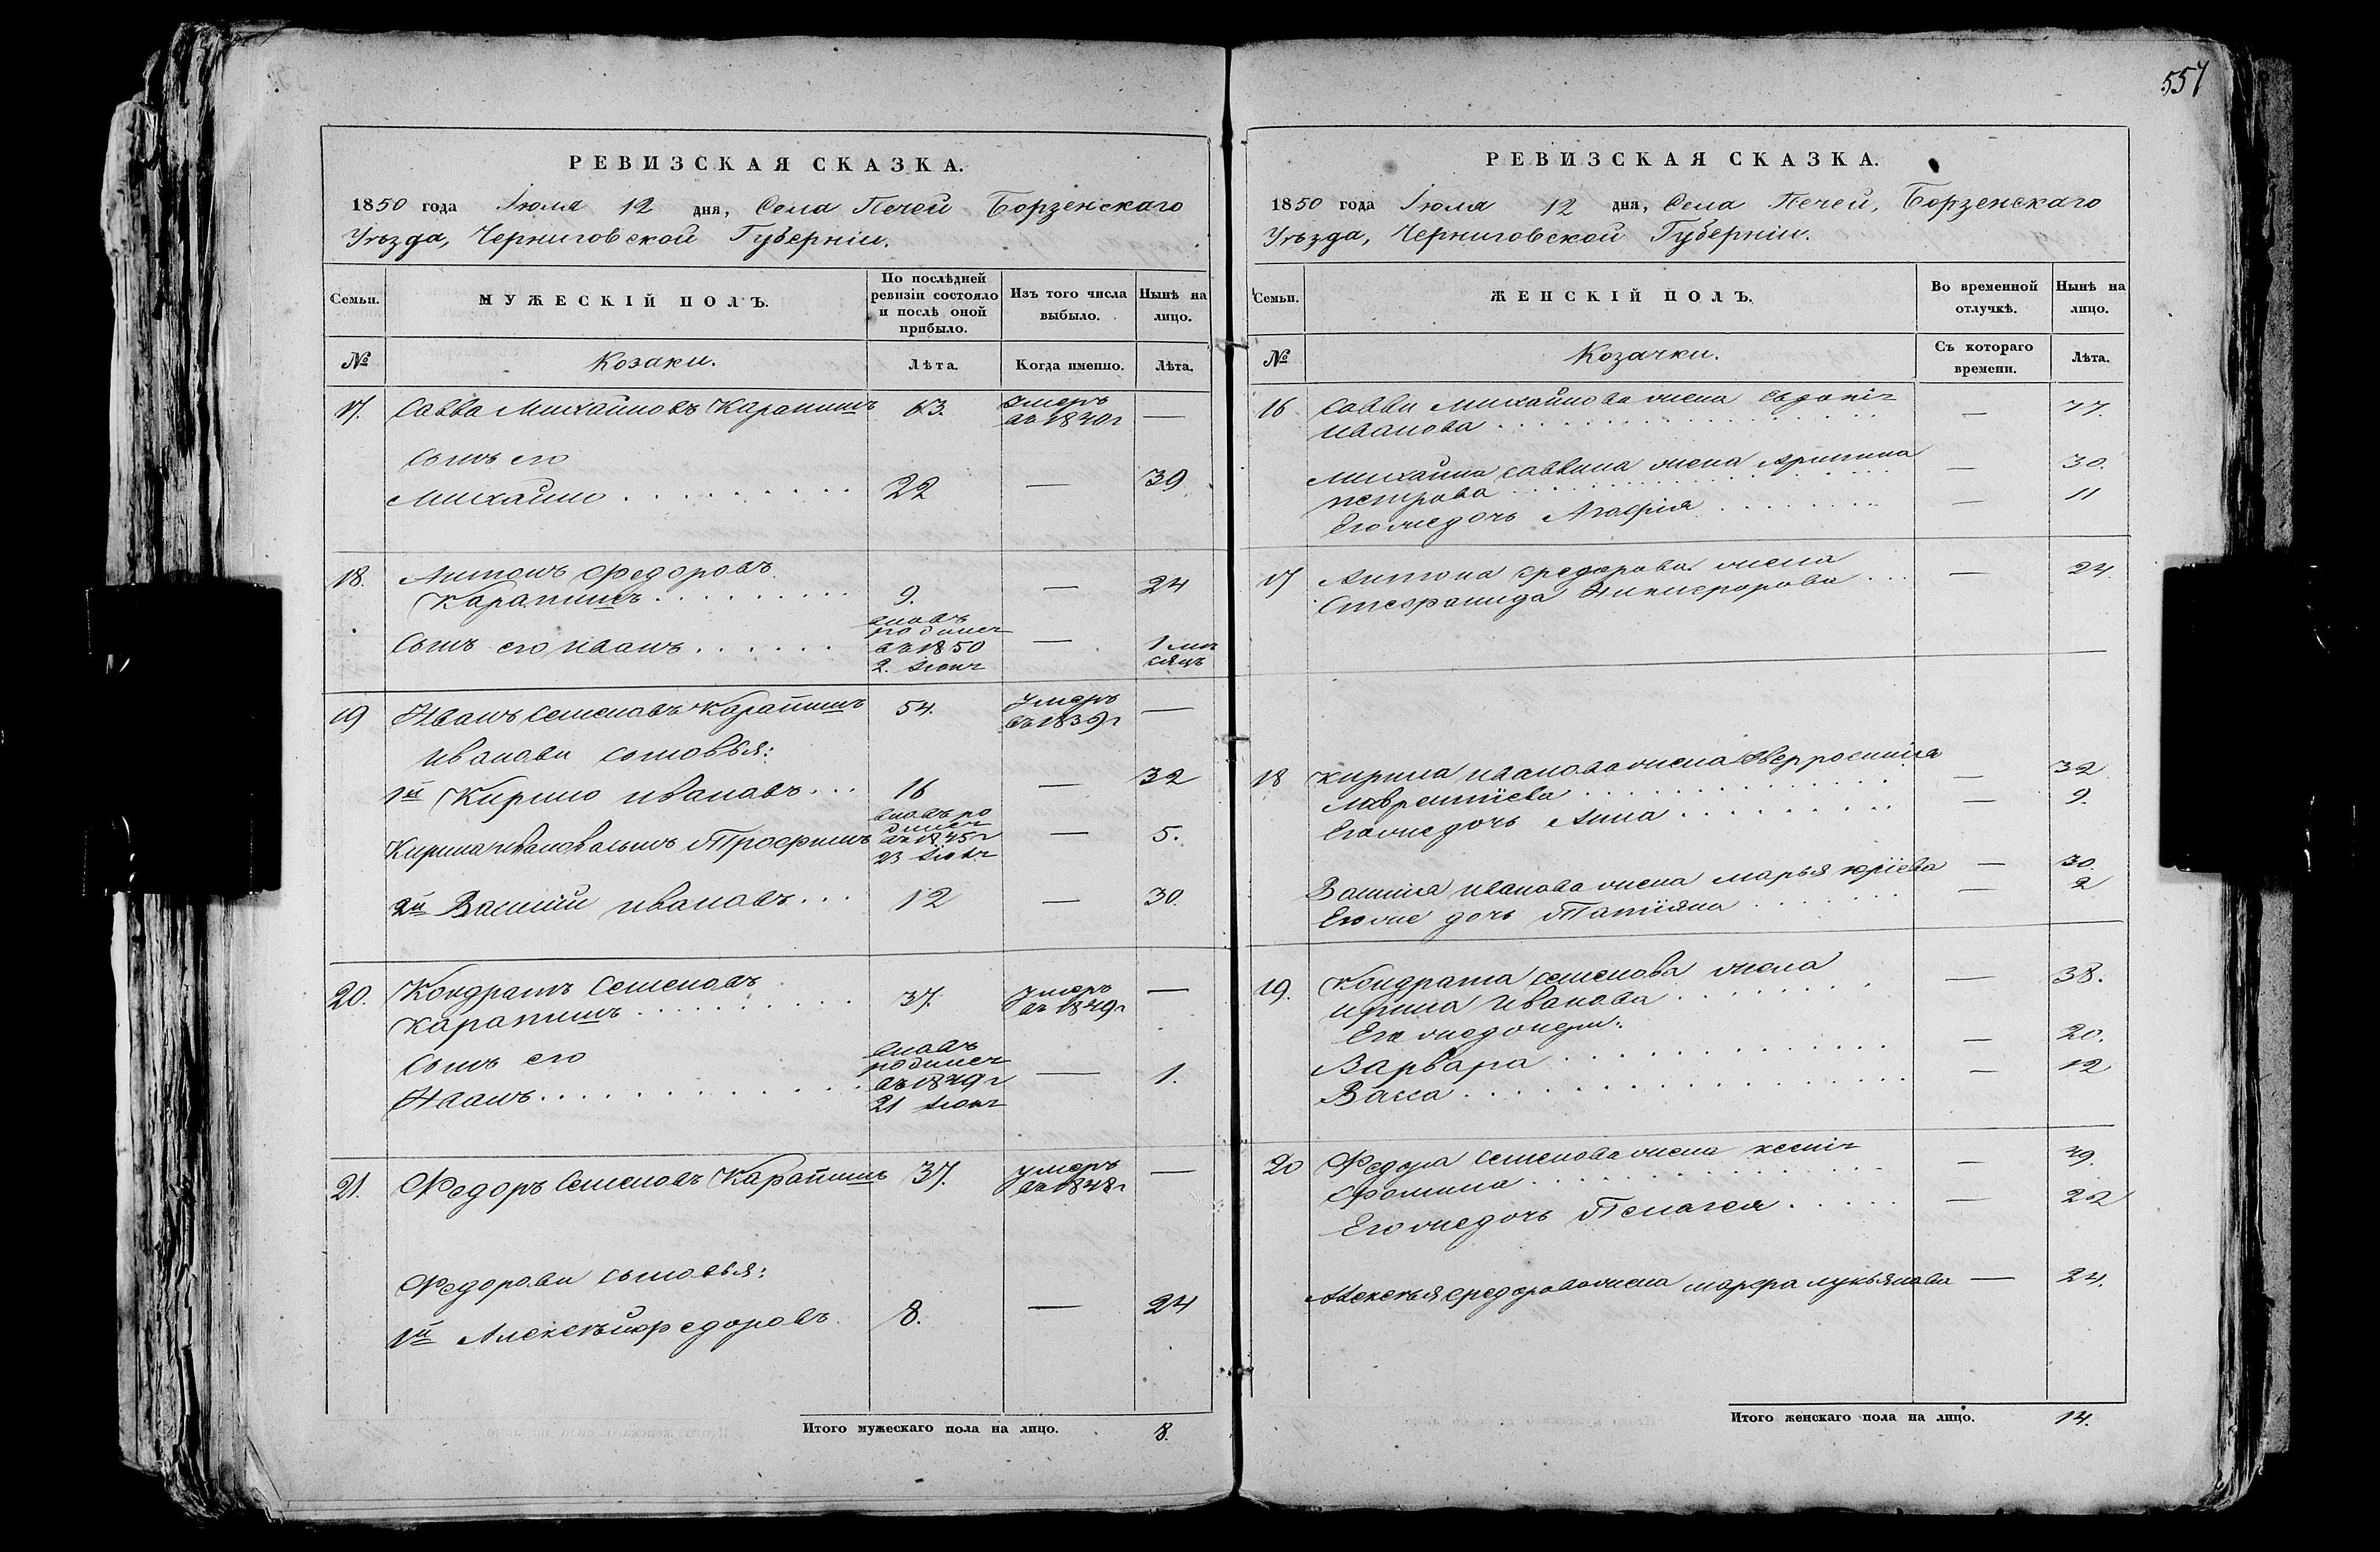 557
РЕВИЗСКАЯ СКАЗКА.
1850 года Июля 12 дня, Села Печей Борзенскаго
Уѣзда, Черниговской Губерніи.
Семьи.
МУЖЕСКІЙ ПОЛЪ.
По послѣдней
ревизіи состояло
и послѣ оной
прибыло.
Изъ того числа
выбыло.
Нынѣ на
лицо.
№
Козаки.
Лѣта.
Когда именно.
Лѣта.
17. Савва Михайловъ Карапишъ 63. Умеръ —
въ 1840г
Сынъ его
Михайло 22 — 39
18. Антонъ Федоровъ
Карапишъ 9. — 24
вновь
родился
Сынъ его Иванъ въ 1850 — 1 мѣ
сяцъ
19 Иванъ Семеновъ Карапишъ 54. Умеръ —
въ 1839г
Ивановы сыновья:
1й Кирило Ивановъ 16 — 32
вновь ро
дился
Кирила Иванова сынъ Трофимъ въ 1845г — 5.
23
2й Василій Ивановъ 12 — 30.
20. Кондратъ Семеновъ
Карапишъ 37. Умеръ —
въ 1849г
Сынъ его
вновь
родился
Иванъ въ 1849г — 1.
21
21. Федоръ Семеновъ Карапишъ 37. Умеръ —
въ 1848г
Федоровы сыновья:
1й Алексѣй Федоровъ 8. — 24
Итого мужескаго пола на лицо. 8.
РЕВИЗСКАЯ СКАЗКА.
1850 года Июля 12 дня, Села Печей, Борзенскаго
Уѣзда, Черниговской Губерніи.
Семьи.
ЖЕНСКІЙ ПОЛЪ.
Во временной
отлучкѣ.
Нынѣ на
лицо.
№
Козачки.
Съ котораго
времени.
Лѣта.
16 Саввы Михайлова жена
Иванова — 77.
Михайла Саввина жена
Петрова — 30.
Его же дочь Агафія — 11
17 Антона Федорова жена
Стефанида Никифорова — 24.
18 Кирила Иванова жена Евфросинія
Лаврентіева — 32
Его же дочь Анна — 9.
Василія Иванова жена Марья Юріева — 30.
Его же дочь Татіяна — 2
19. Кондрата Семенова жена
Ирина Иванова — 38.
Его же дочери:
Варвара — 20.
Васса — 12
20 Федора Семенова жена Ксенія
Фомина — 39.
Его же дочь Пелагея — 22
Алексѣя Федорова жена Марфа Лукьянова — 24.
Итого женскаго пола на лицо. 14.